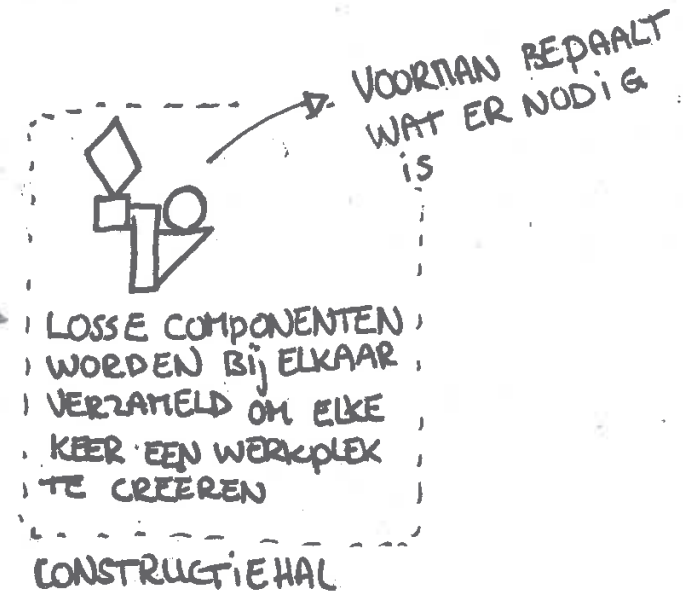 VOORMAN BEPAALT
WAT ER NODiG
iS
LOSSE COMPONENTEN
WORDEN Bij ELKAAR
VERZAMELD OM ELKE
KEER EEN WERKPLEK
TE CREEREN
CONSTRUCTiEHAL